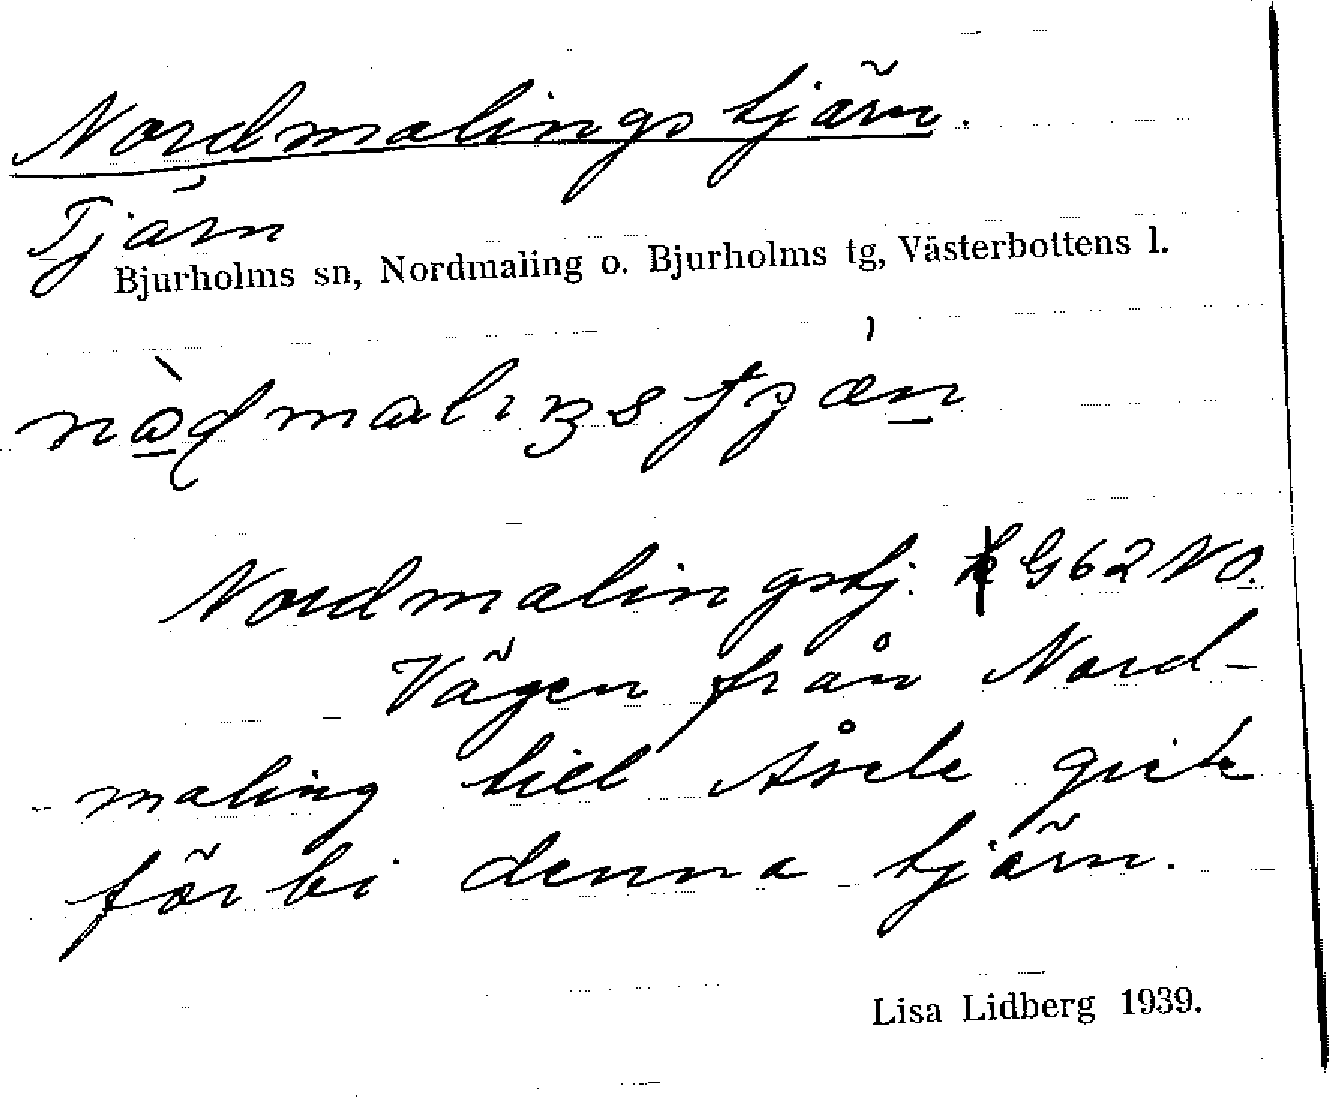 Nordmalingstjärn.
Tjärn
Bjurholms sn, Nordmaling o. Bjurholms tg, Västerbottens l.
Nordmalingstj. G62 NO.
Vägen från Nord-
maling till Åsele gick
förbi denna tjärn.
Lisa Lidberg 1939.